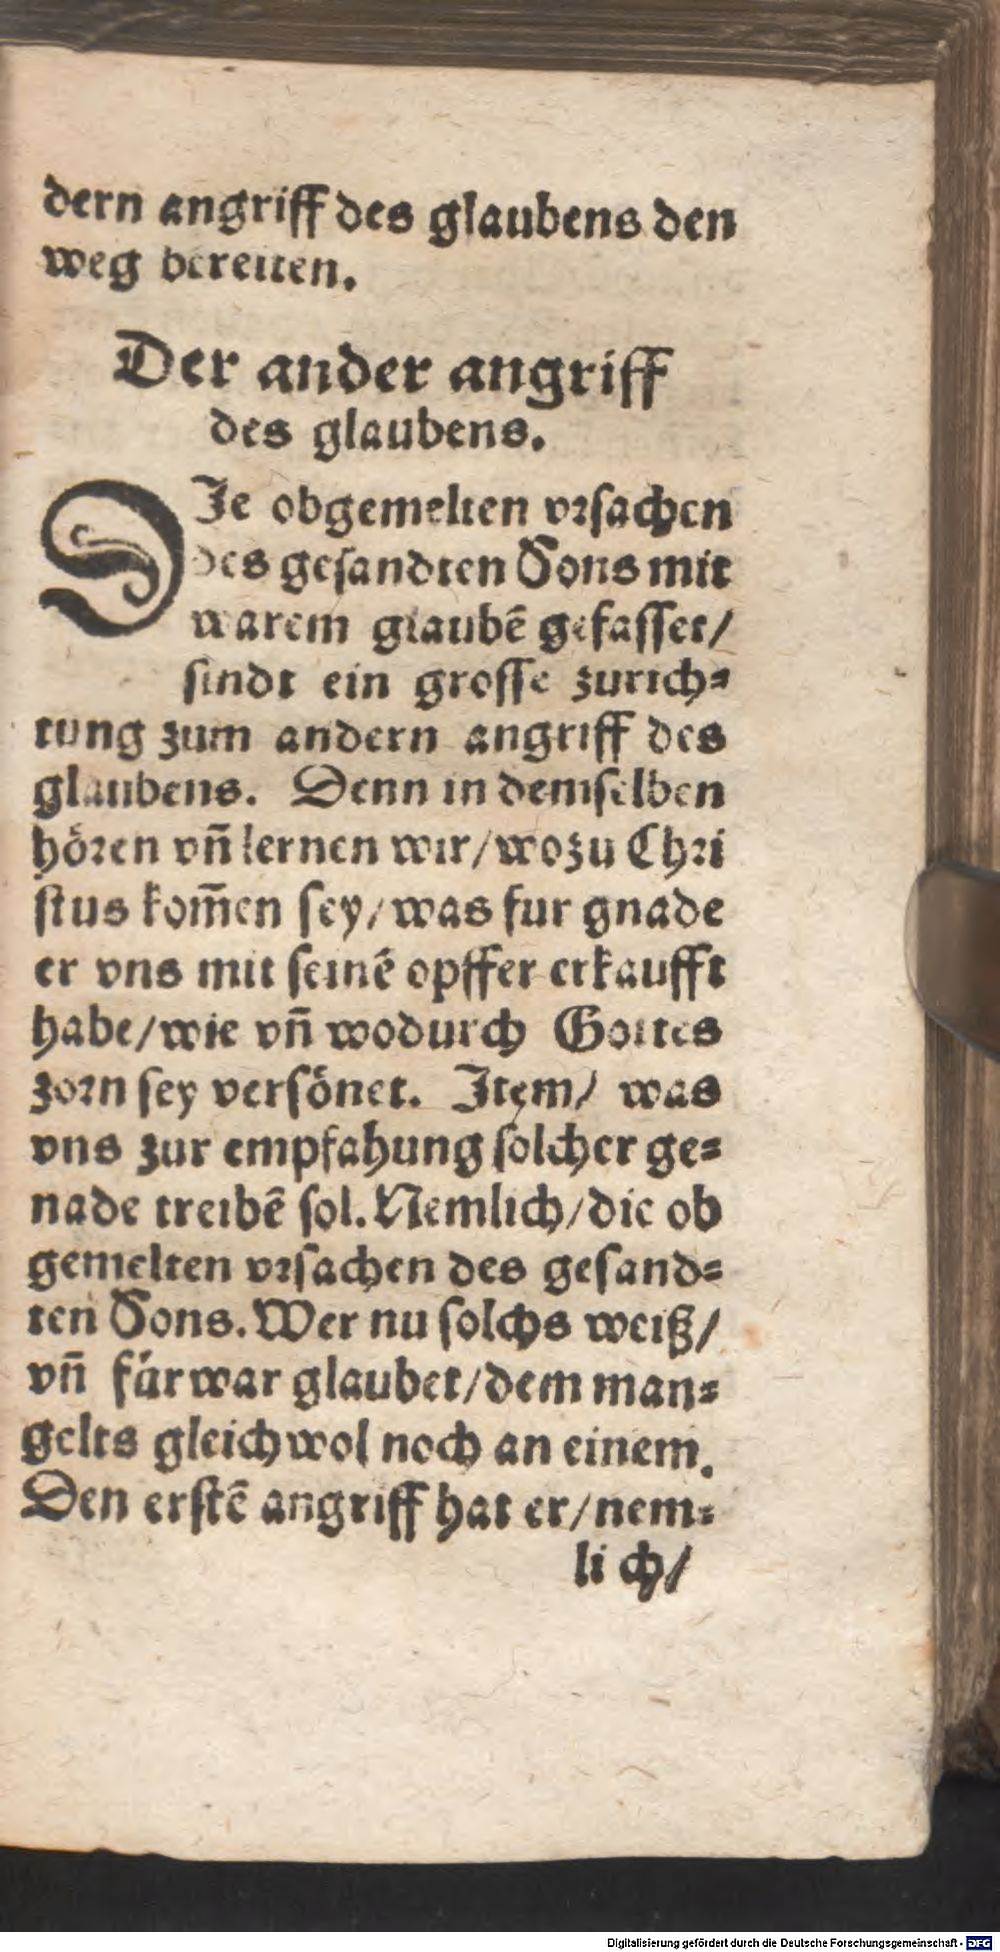 dern angriff des glaubens den
weg bereiten.
Der ander angriff
des glaubens.
DJe obgemelten vrsachen
des gesandten Sons mit
warem glaubē gefasset/
sindt ein grosse zurich-
tung zum andern angriff des
glaubens. Denn in demselben
hören vñ lernen wir/wozu Chri
stus kom̄en sey/was fur gnade
er vns mit seinē opffer erkaufft
habe/wie vñ wodurch Gottes
zorn sey versönet. Jtem/ was
vns zur empfahung solcher ge-
nade treibē sol. Nemlich/die ob
gemelten vrsachen des gesand-
ten Sons. Wer nu solchs weiß/
vñ fürwar glaubet/dem man-
gelts gleichwol noch an einem.
Den erstē angriff hat er/nem-
lich/
Digitalisierung gefördert durch die Deutsche Forschungsgemeinschaft - DFG